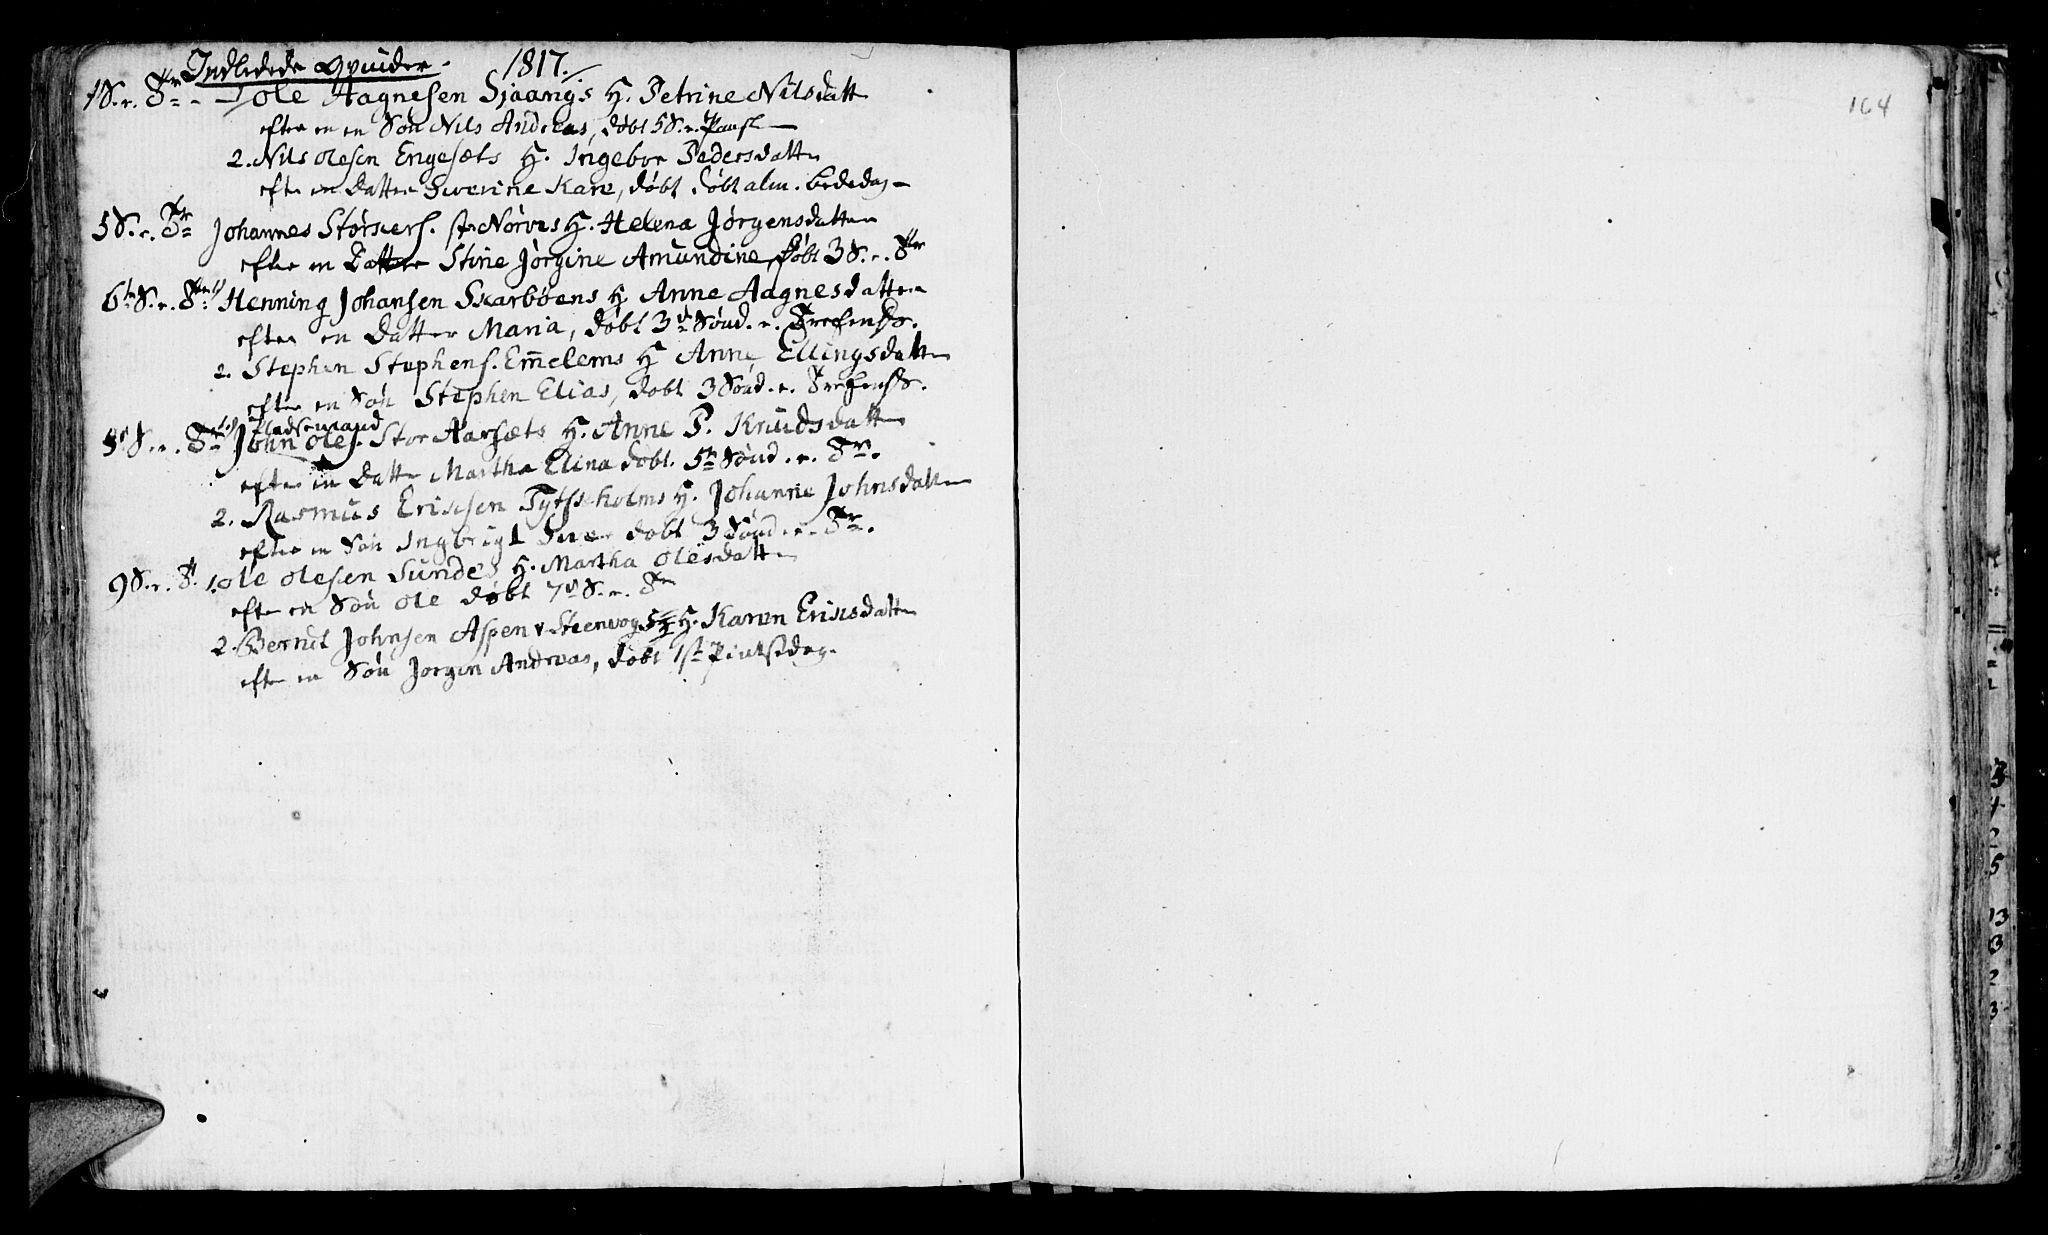 Indledede Qvinder. 1817.
1 S. e. Tr. - 1/ Ole Aagnesen Sjaangs H. Petrine Nilsdatt
efter en Søn Nils Andreas, døbt 5 S. e. Paask
2. Nils Olesen Engesæts H. Ingebor Pedersdatt
efter en Datter Severine Kare, døbt døbt alm. bededag
5 S. e. Tr. Johannes Størkers. st. Nørves H. Helena Jørgensdatter
efter en Datter Stine Jørgine Amundine, døbt 3 S. e. Tr
6te S. e. Tr. 1) Henning Johansen Skarbøens H Anne Aagnesdatter
efter en Datter Maria, døbt 3d Sønd. e. Trefens.
2. Stephen Stephens. Emelems H Anne Ellingsdatt
efter en Søn Stephen Elias, døbt 3 Sønd. e. Trefens.
Pladsemand
8 S. e. Tr. 1) John Oles. Stor Aarsæts H. Anne P. Knudsdatt
efter en Datter Martha Elina døbt. 5te Sønd. e. Tr.
2. Rasmus Ericsen Tytseholms H. Johanne Johnsdatt
efter en Søn Ingbrigt døbt 3 Sønd. e. Tr.
9 S. e. Tr. 1. Ole Olesen Sundes H. Martha Olesdatt
efter en Søn Ole døbt 7d S. e. Tr
2. Berndt Johnsen Aspen v Steenvog H. Karen Ericsdatt
efter en Søn Jørgen Andreas, døbt 1ste Pintsedag.
164